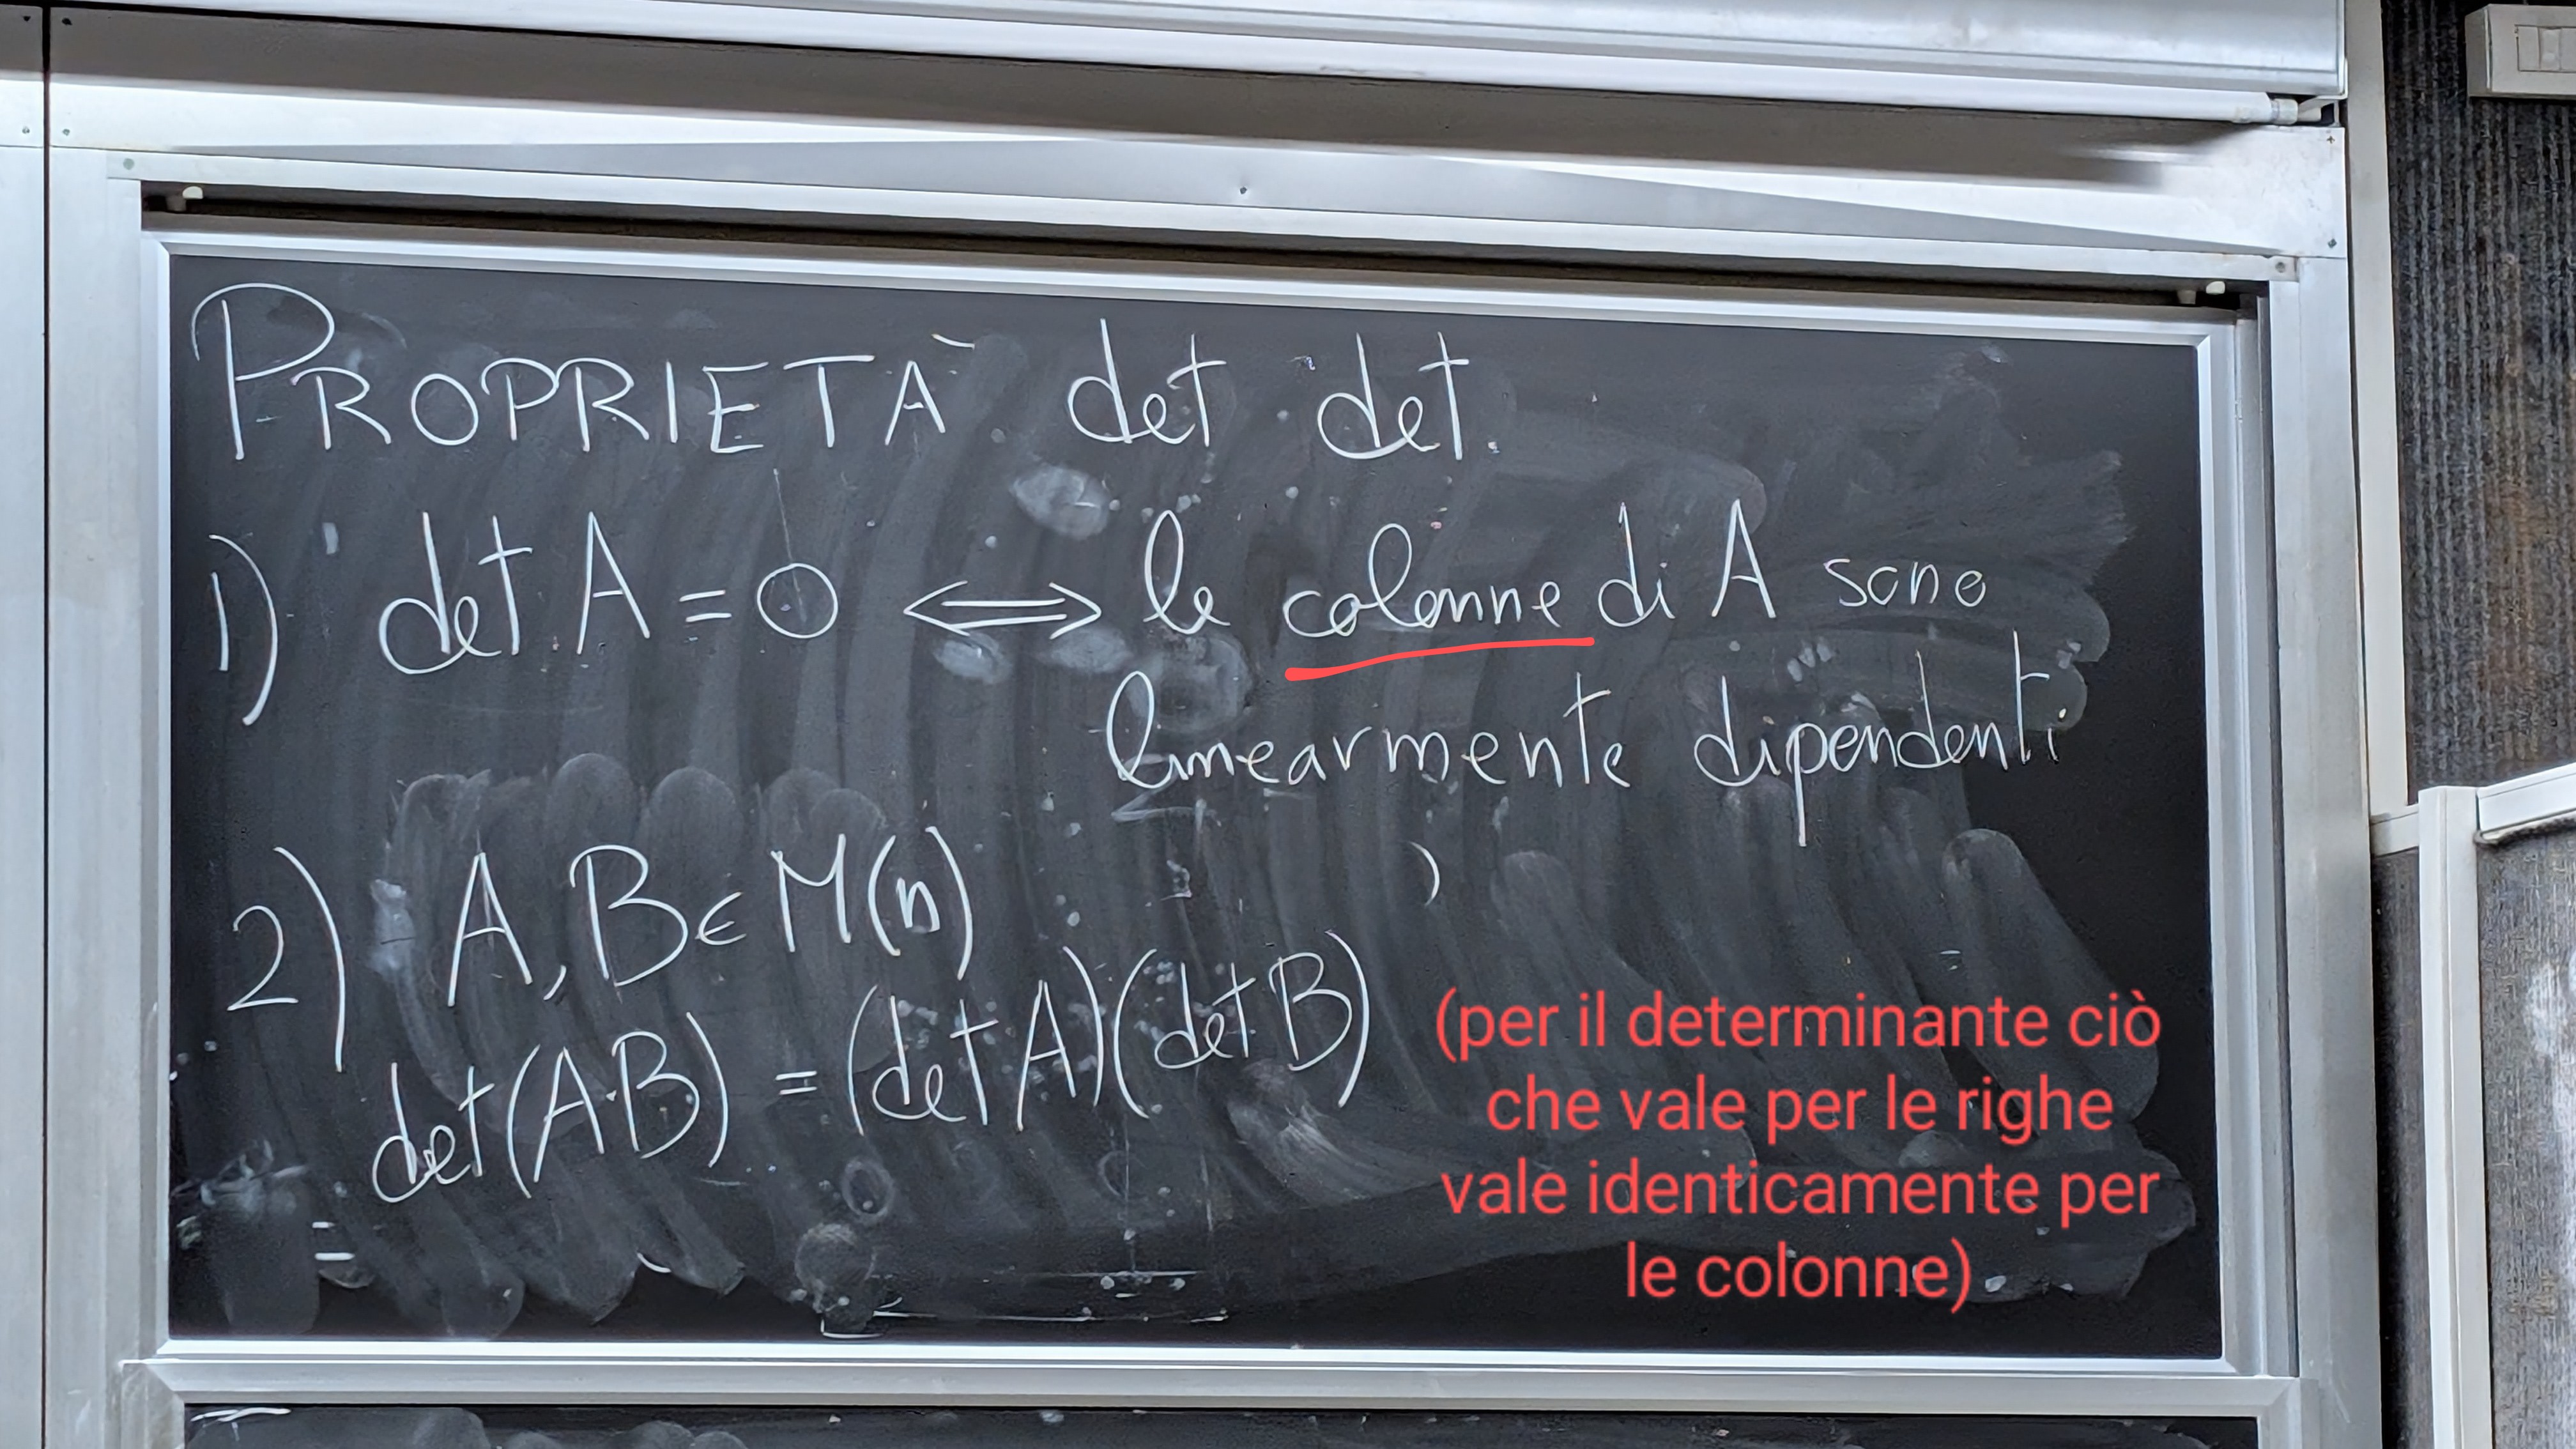 PROPRIETÀ det det.
1) det A = 0 ⟺ le colonne di A sono
linearmente dipendenti
2) A, B ∈ M(n)
det(A·B) = (det A)(det B)
(per il determinante ciò
che vale per le righe
vale identicamente per
le colonne)